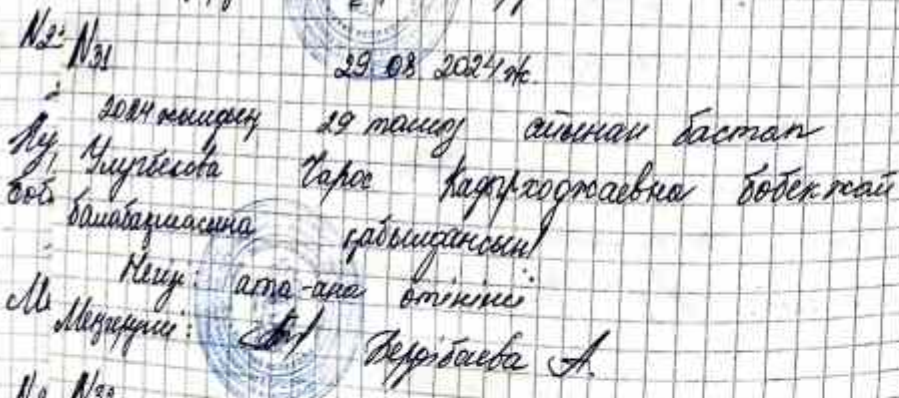 №31 29 08 2024 ж.
2024 жылдың 29 тамыз айынан бастап
Улугбекова Чарос Кадырходжаевна бөбекжай
балабақшасына қабылдансын!
Негіз: ата-ана өтініші
Меңгеруші: Бердібаева А.